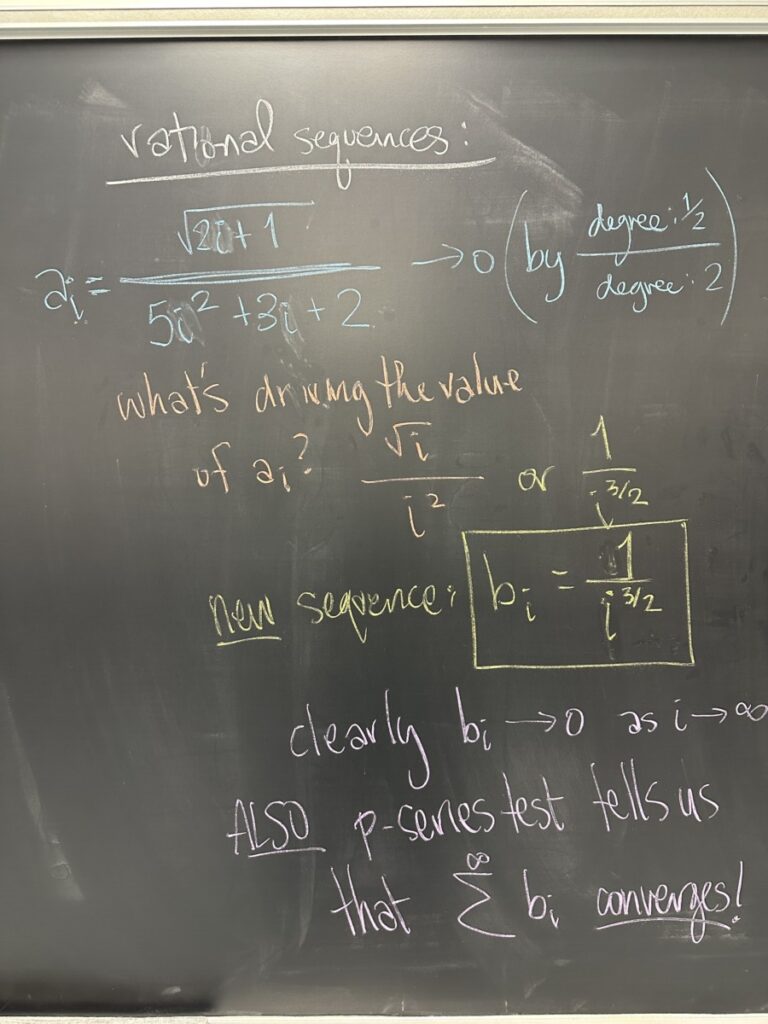 rational sequences:
aᵢ = √(2i+1) / (5i² + 3i + 2) → 0 (by degree: 1/2 / degree: 2)
what's driving the value
of aᵢ? √i / i² or 1 / i^3/2
new sequence: bᵢ = 1 / i^3/2
clearly bᵢ → 0 as i → ∞
ALSO p-series test tells us
that ∑^∞ bᵢ converges!